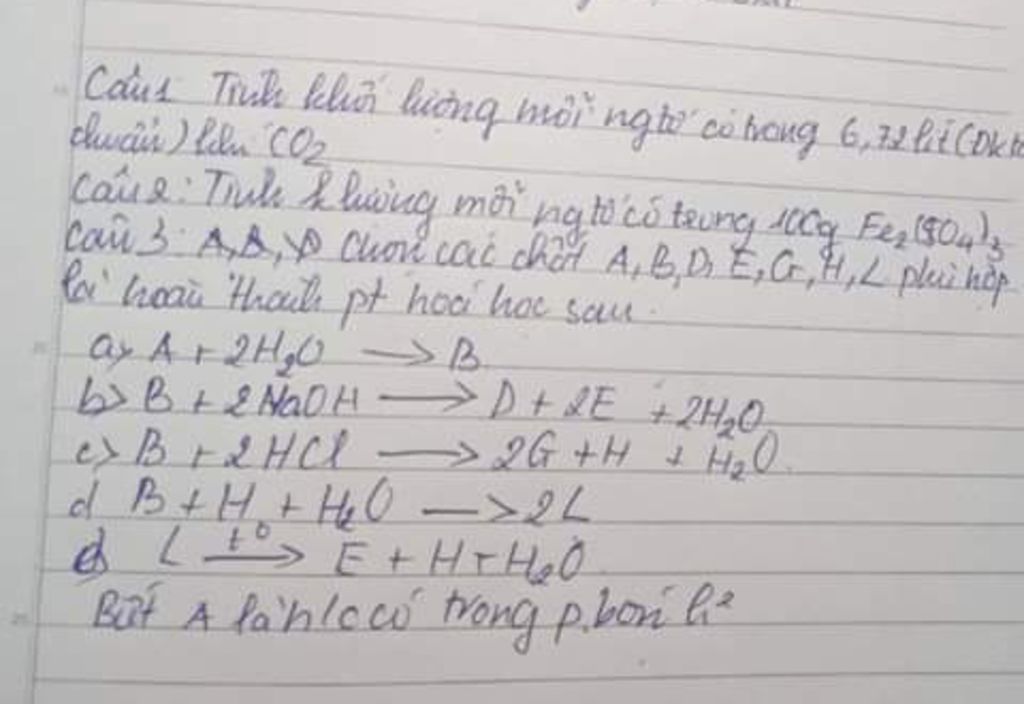 Câu1 Tính khối lượng mỗi ngtố có trong 6,72 lít (Đk
chuẩn) khí CO₂
Câu2: Tính k lượng mỗi ngtố có trong 100g Fe₂(SO₄)₃
Câu 3: A, B, D Chọn các chất A, B, D, E, G, H, L phù hợp
hoàn thành pt hoá học sau.
a> A + 2H₂O → B
b> B + 2NaOH → D + 2E + 2H₂O
c> B + 2HCl → 2G + H + H₂O.
d B + H + H₂O → 2L
e L t⁰→ E + H + H₂O.
Biết A là h/c có trong p.bón h²